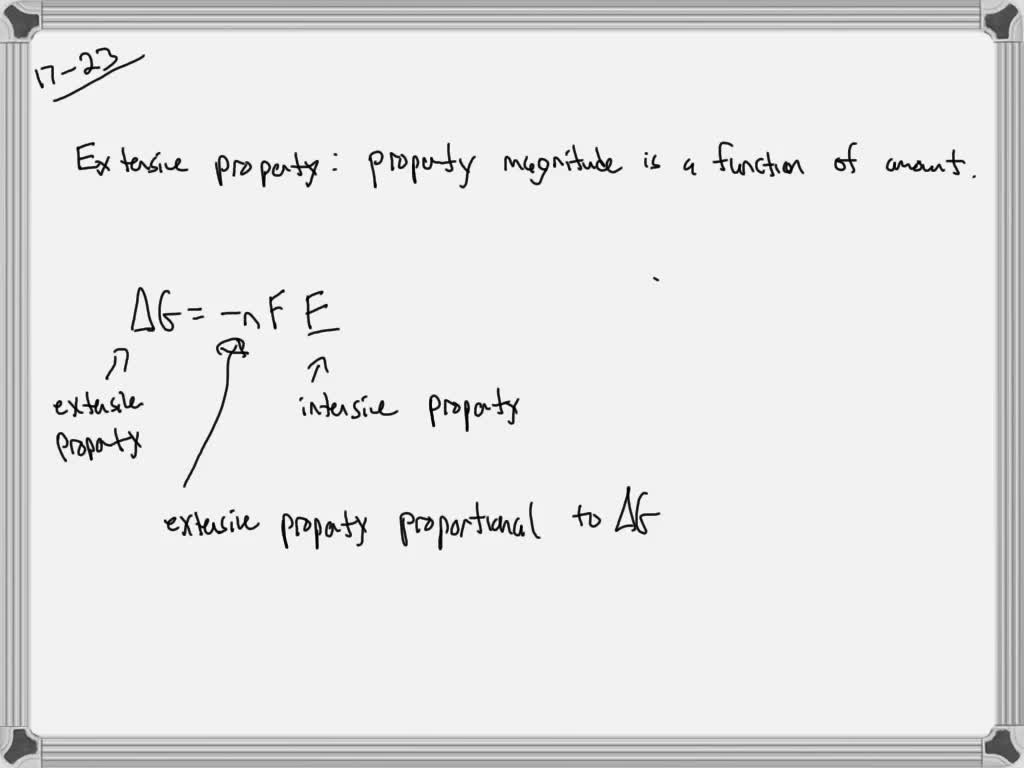 17-23
Extensive property: property magnitude is a function of amount.
ΔG = -nFE
extensive
property
intensive property
extensive property proportional to ΔG